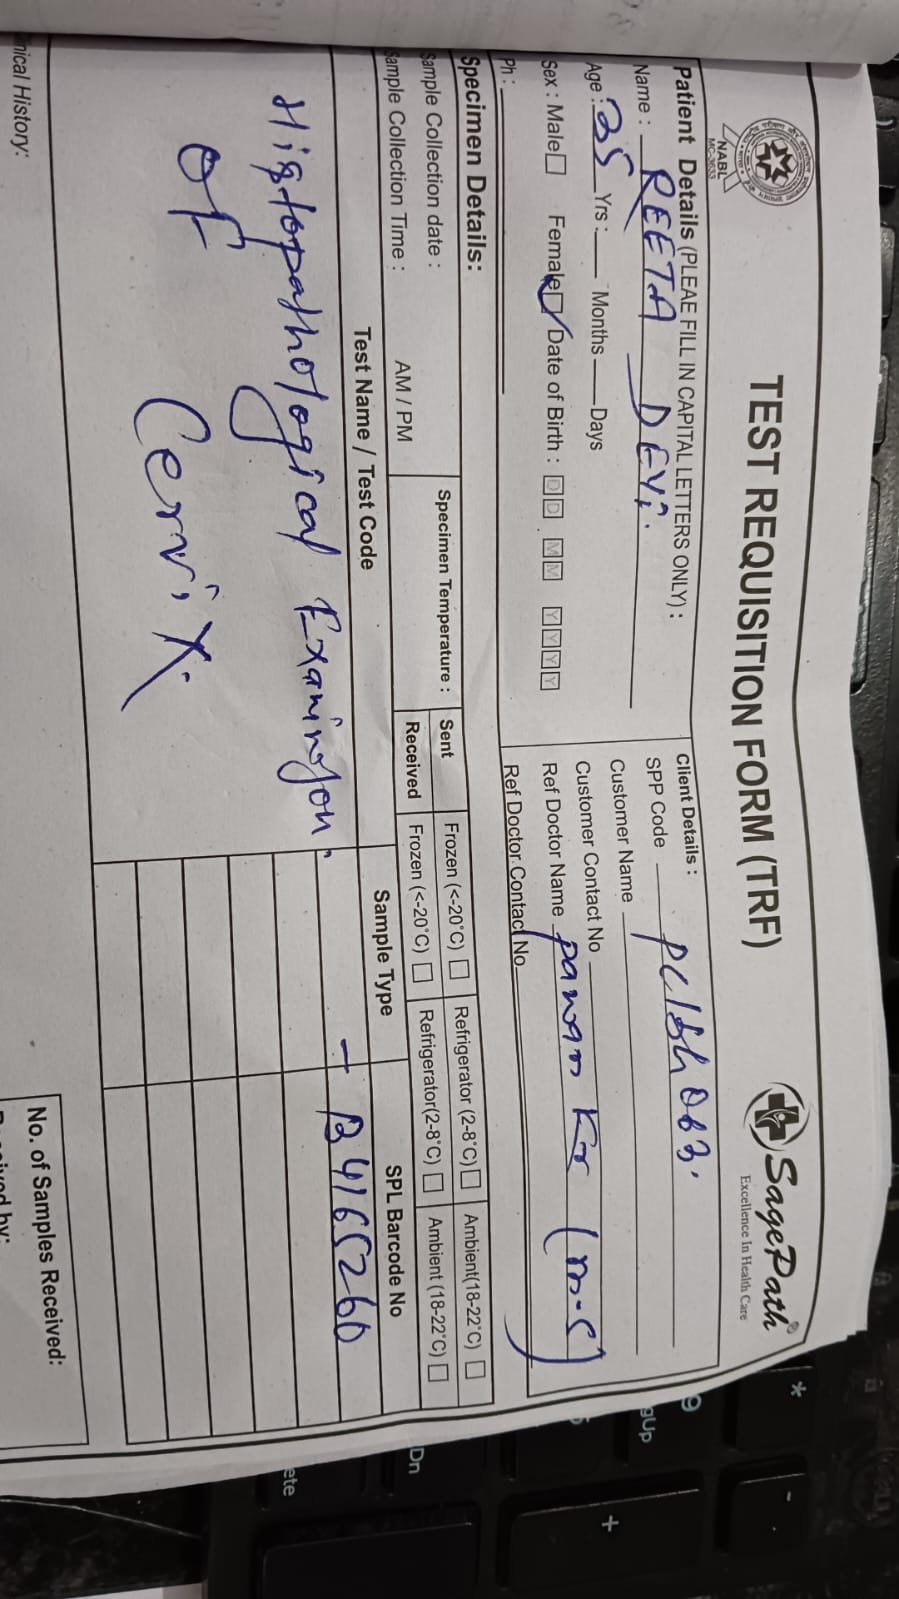 TEST REQUISITION FORM (TRF)
NABL
SagePath®
Excellence In Health Care
Patient Details (PLEAE FILL IN CAPITAL LETTERS ONLY) :
Name : REETA DEVI.
Age : 35 Yrs : Months Days
Sex : Male Female Date of Birth : D D M M Y Y Y Y
Ph :
Client Details :
SPP Code
Customer Name
Customer Contact No
Ref Doctor Name Pawan Kr (M.S)
Ref Doctor Contact No
Specimen Details:
Sample Collection date :
Sample Collection Time : AM / PM
Specimen Temperature :
Sent Frozen (<-20°C) Refrigerator (2-8°C) Ambient(18-22°C)
Received Frozen (<-20°C) Refrigerator(2-8°C) Ambient (18-22°C)
Test Name / Test Code Sample Type SPL Barcode No
Histopathological Examination - B4165260
of
Cervix
No. of Samples Received:
nical History:
* 9
gUp
-
+
Dn
ete